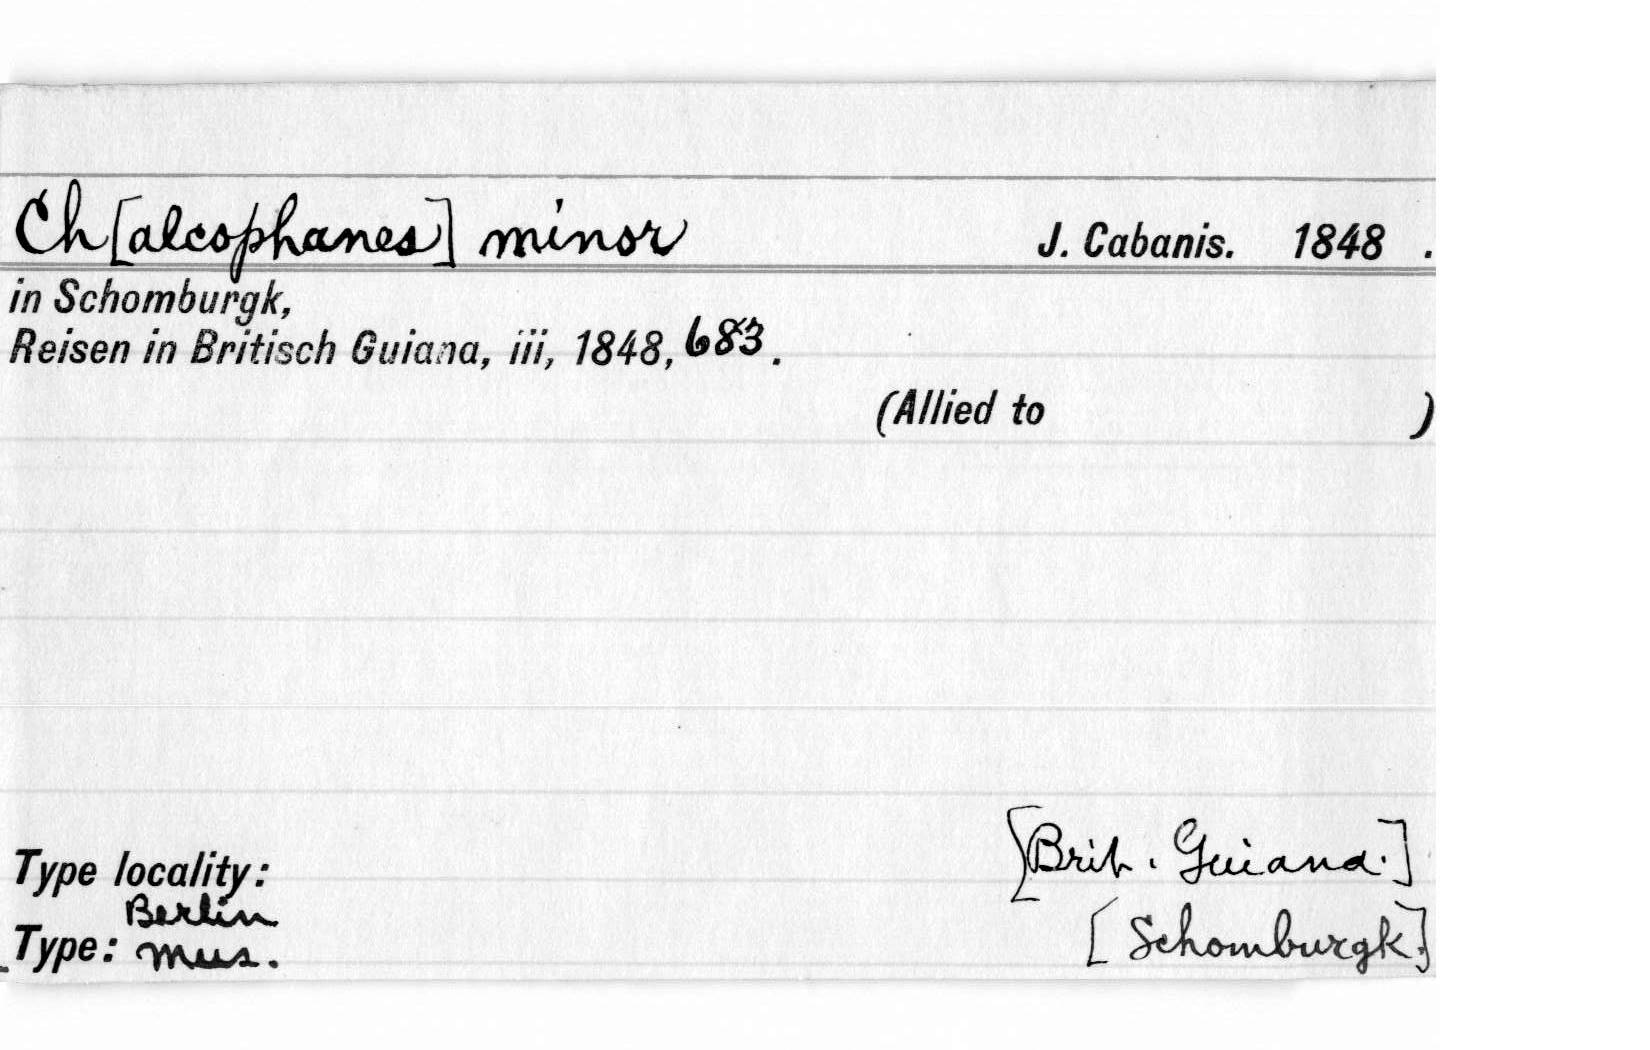 Ch[alcophanes] minor J. Cabanis. 1848 .
in Schomburgk,
Reisen in Britisch Guiana, iii, 1848, 683.
(Allied to )
[Brit. Guiana.]
Type locality:
Berlin
Type: Mus. [Schomburgk.]